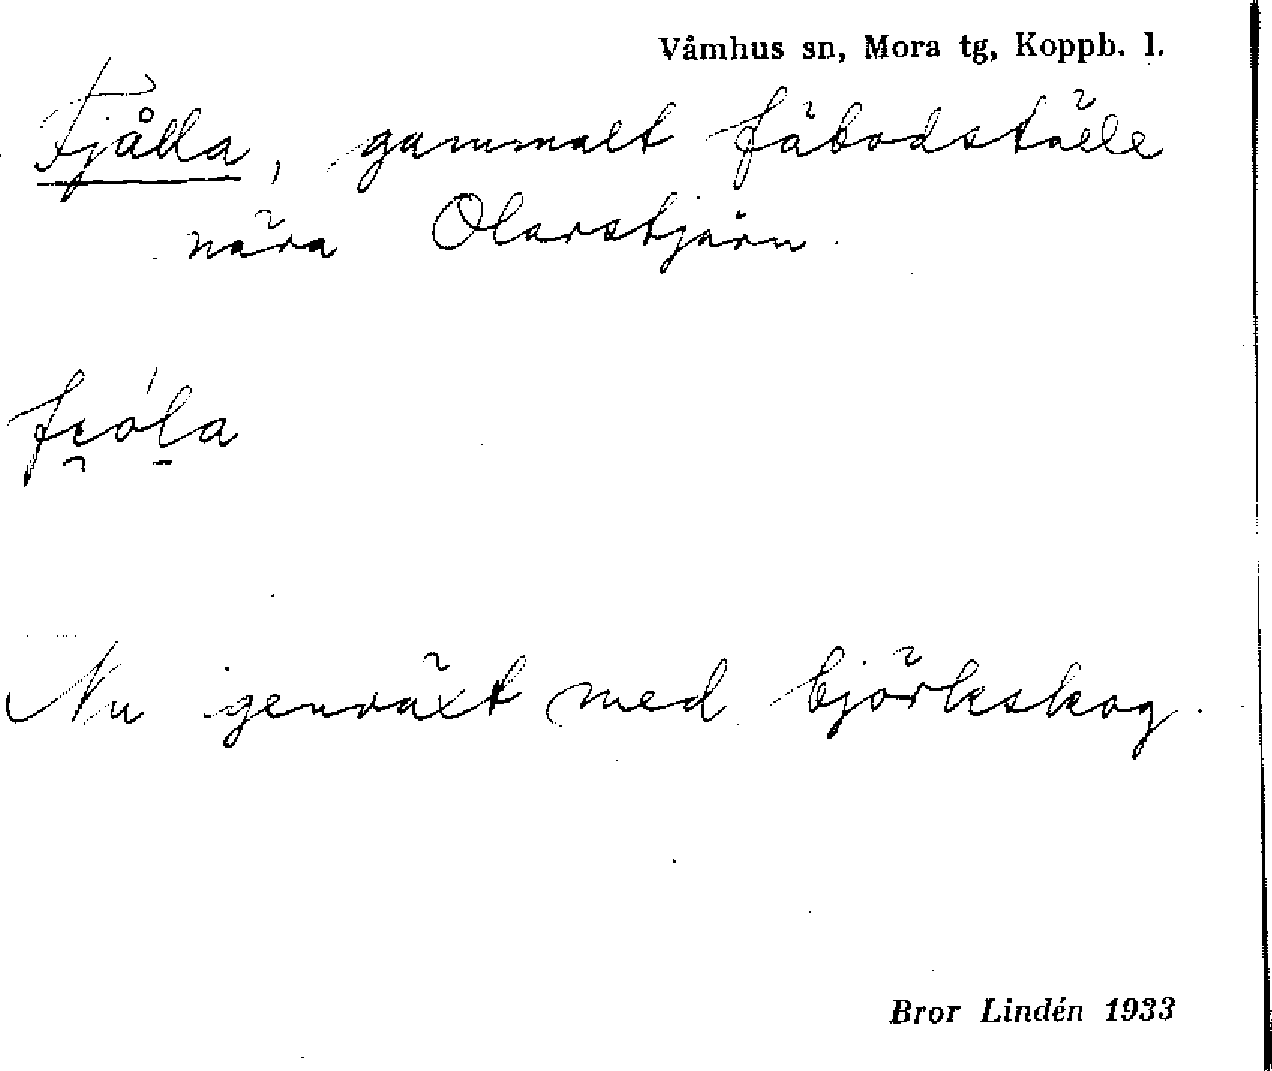 Våmhus sn, Mora tg, Koppb. l.
Fjålla, gammalt fäbodställe
nära Olarstjärn.
fi̯óla
Nu genväxt med björkskog.
Bror Lindén 1933